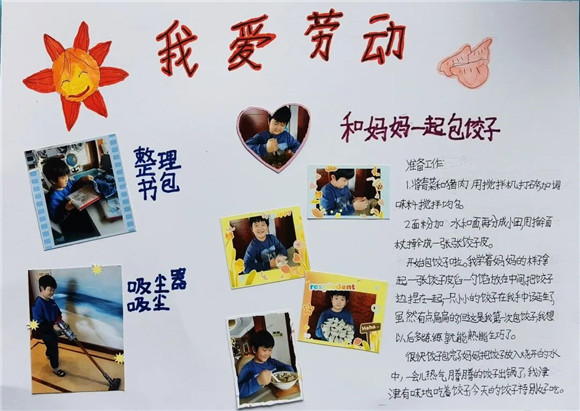 我爱劳动
和妈妈一起包饺子
整理
书包
吸尘器
吸尘
准备工作:
1.将青菜和猪肉,用搅拌机打碎加调
味料搅拌均匀。
2.面粉加水和面再分成小团用擀面
杖擀成一张张饺子皮。
开始包饺子啦。我学着妈妈的样拿
起一张饺子皮舀一勺馅放在中间把饺子
边捏在一起一只小小的饺子在我手中诞生了
虽然有点扁扁的但这是我第一次包饺子我想
以后多练练就能熟能生巧了。
很快饺子包完了妈妈把饺子放入烧开的水
中,一会儿热气腾腾的饺子出锅了,我津
津有味地吃着饺子今天的饺子特别好吃。
Haha~